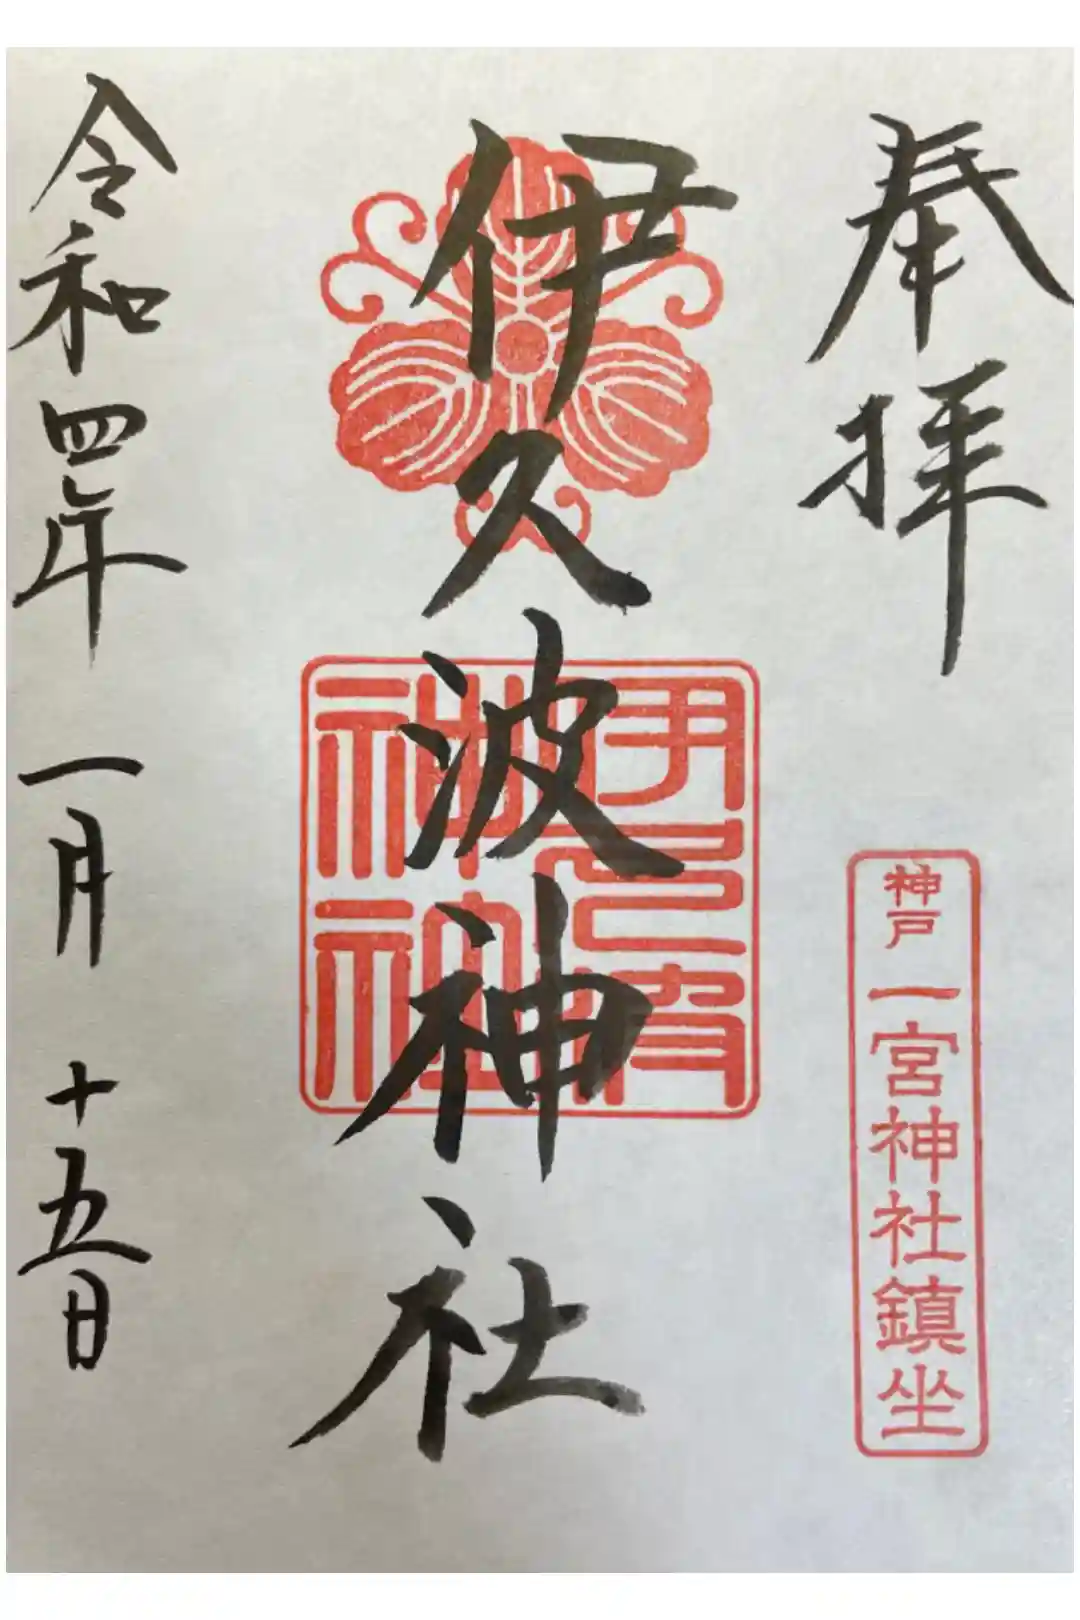 奉拝
神戸 一宮神社鎮坐
伊久波神社
伊久波
神社
令和四年 一月 十五日